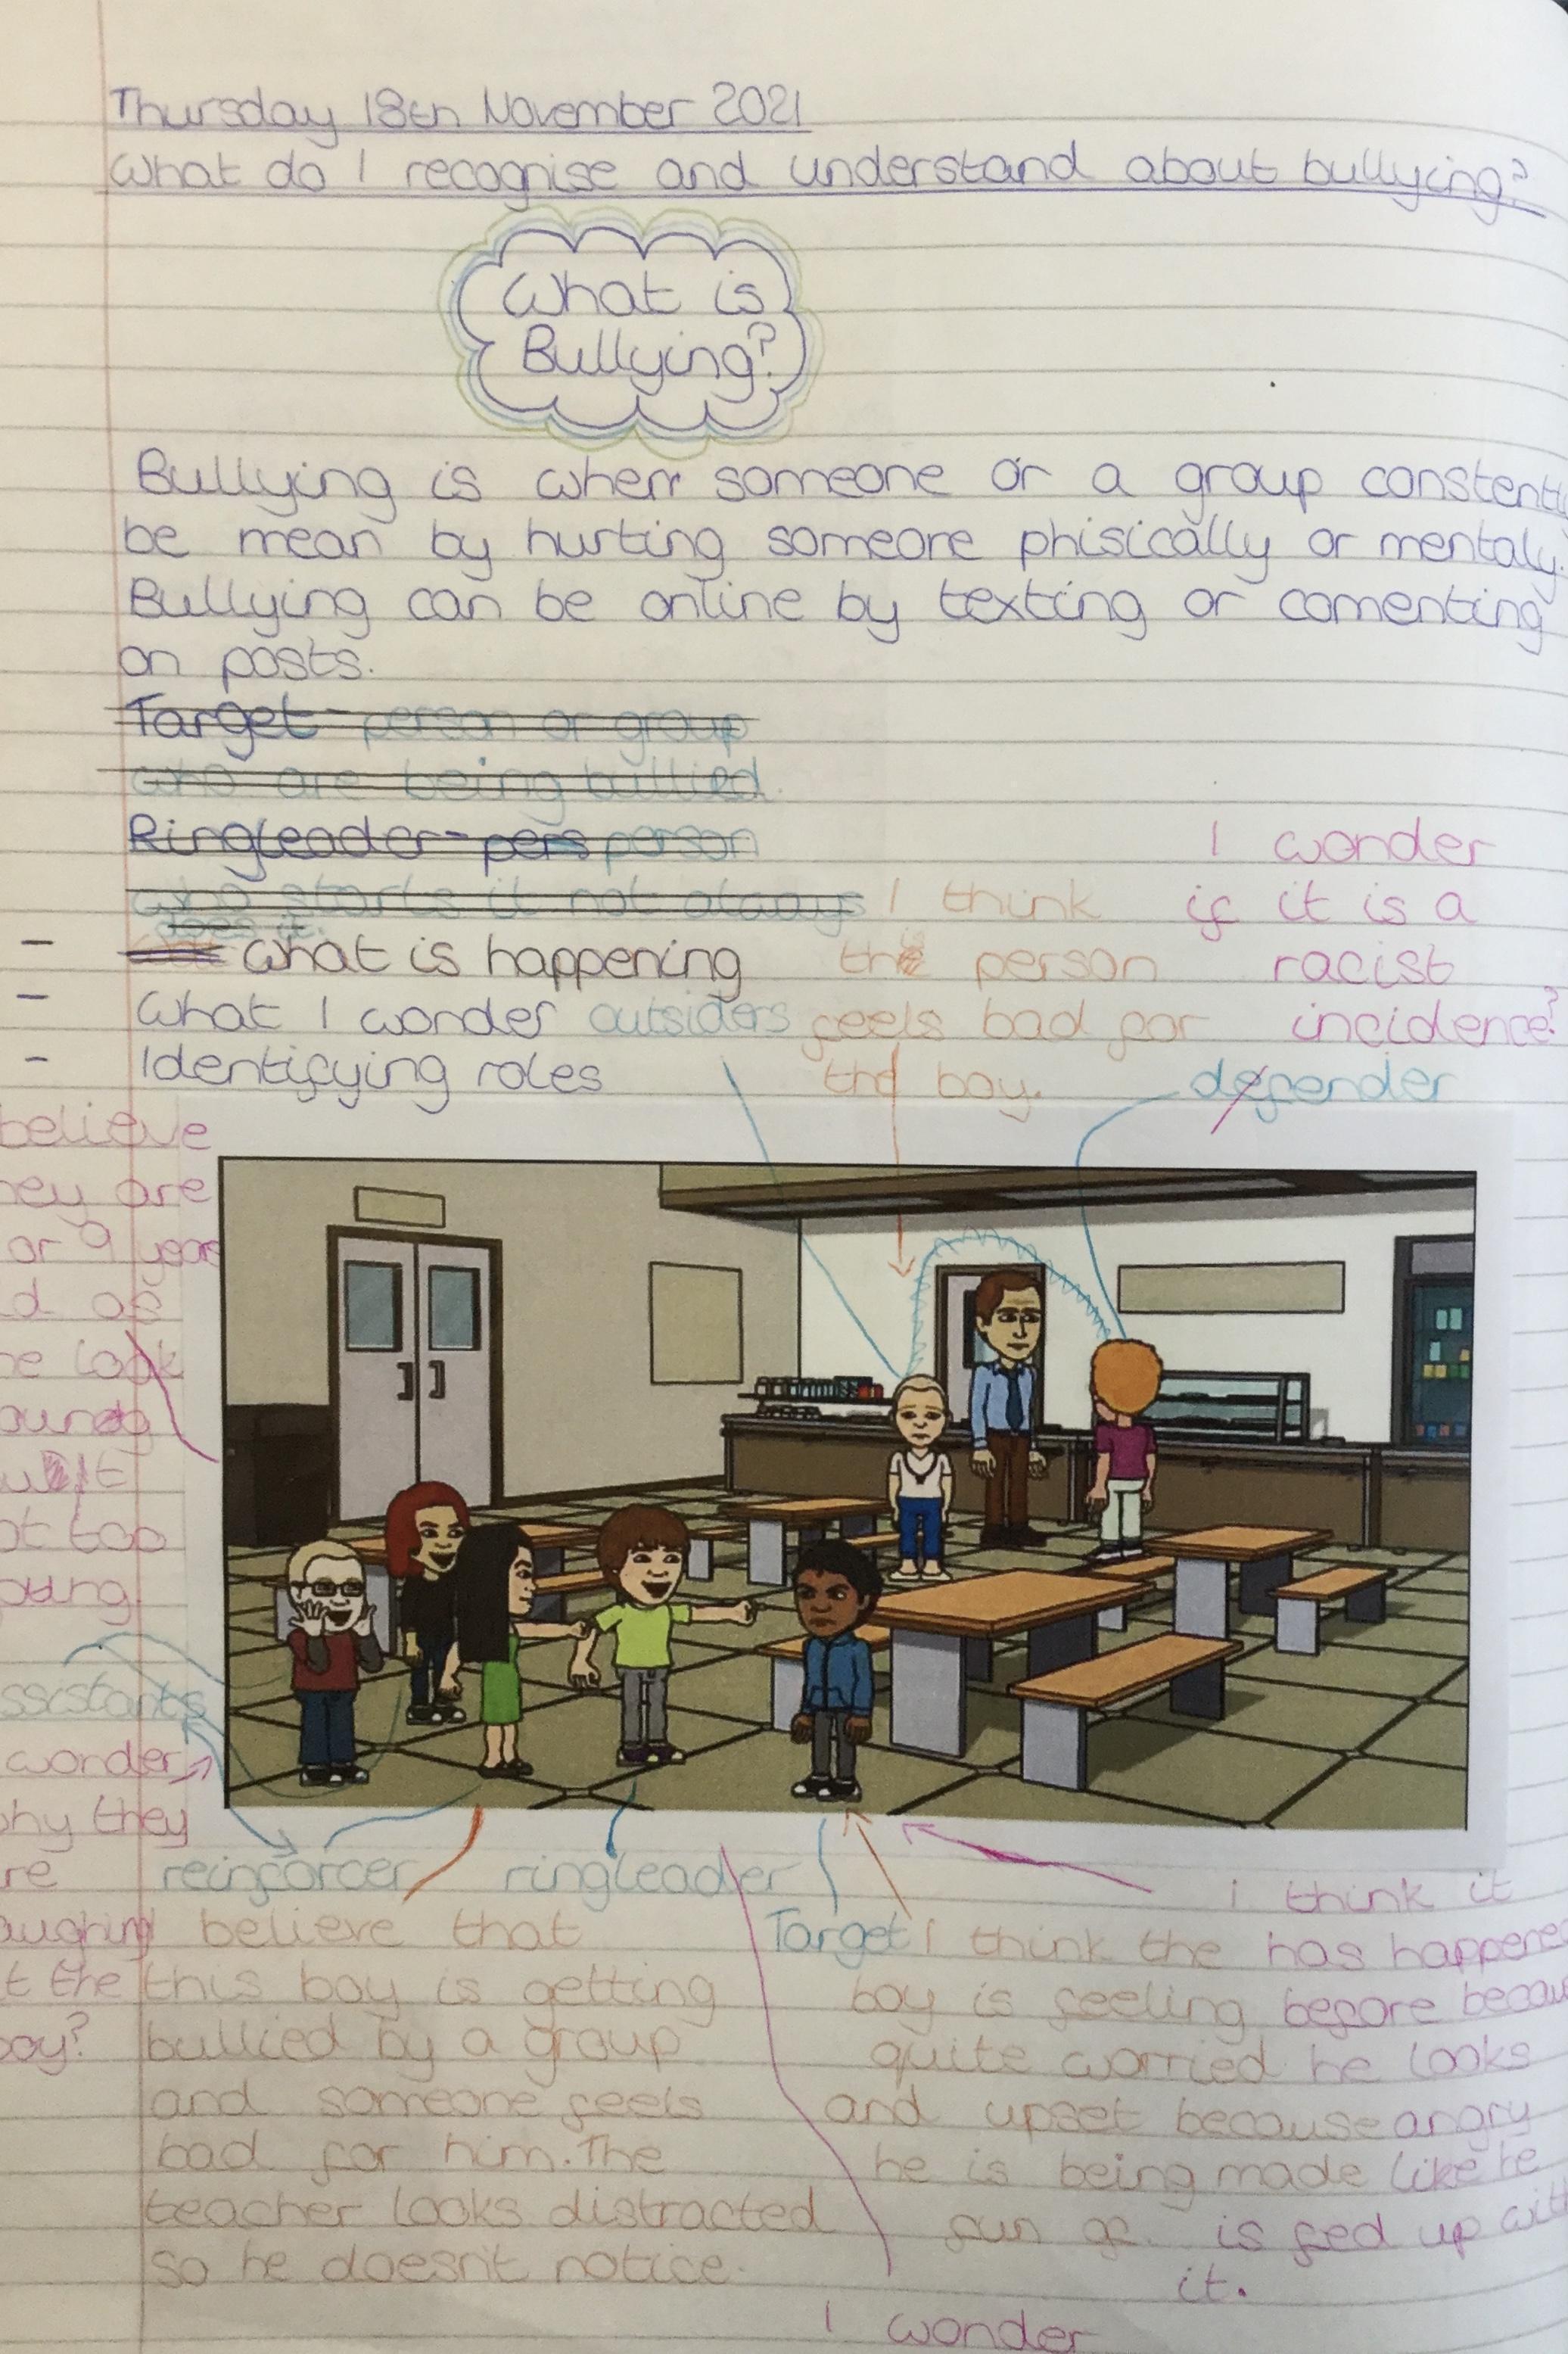 Thursday 18th November 2021
What do I recognise and understand about bullying?
What is
Bullying?
Bullying is when someone or a group constentl
be mean by hurting someone phisically or mentaly.
Bullying can be online by texting or comenting
on posts.
Target - person or group
who are being bullied.
Ringleader - pers person
who starts it not always
does it.
What is happening
What I wonder
Identifying roles
outsiders
I think
the person
feels bad for
the boy.
I wonder
if it is a
racist
incidence?
defender
believe
hey are
or 9 years
d as
he look
ound
t too
assistants
wonder
why they
re
aughing
t the
boy?
reinforcer
ringleader
Target
believe that
this boy is getting
bullied by a group
and someone feels
bad for him. The
teacher looks distracted
so he doesn't notice.
I think the
boy is feeling
quite worried
and upset because
he is being made
fun of.
I think it
has happened
before becau
he looks
angry
like he
is fed up with
it.
I wonder